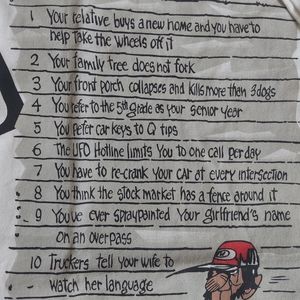 1 Your relative buys a new home and you have to
help take the wheels off it
2 Your family tree does not fork
3 Your front porch collapses and kills more than 3 dogs
4 You refer to the 5th grade as your senior year
5 You prefer car keys to Q tips
6 The UFO Hotline limits You to one call per day
7 You have to re-crank Your car at every intersection
8 You think the stock market has a fence around it
9 You've ever spraypainted Your girlfriend's name
on an overpass
10 Truckers tell your wife to
watch her language